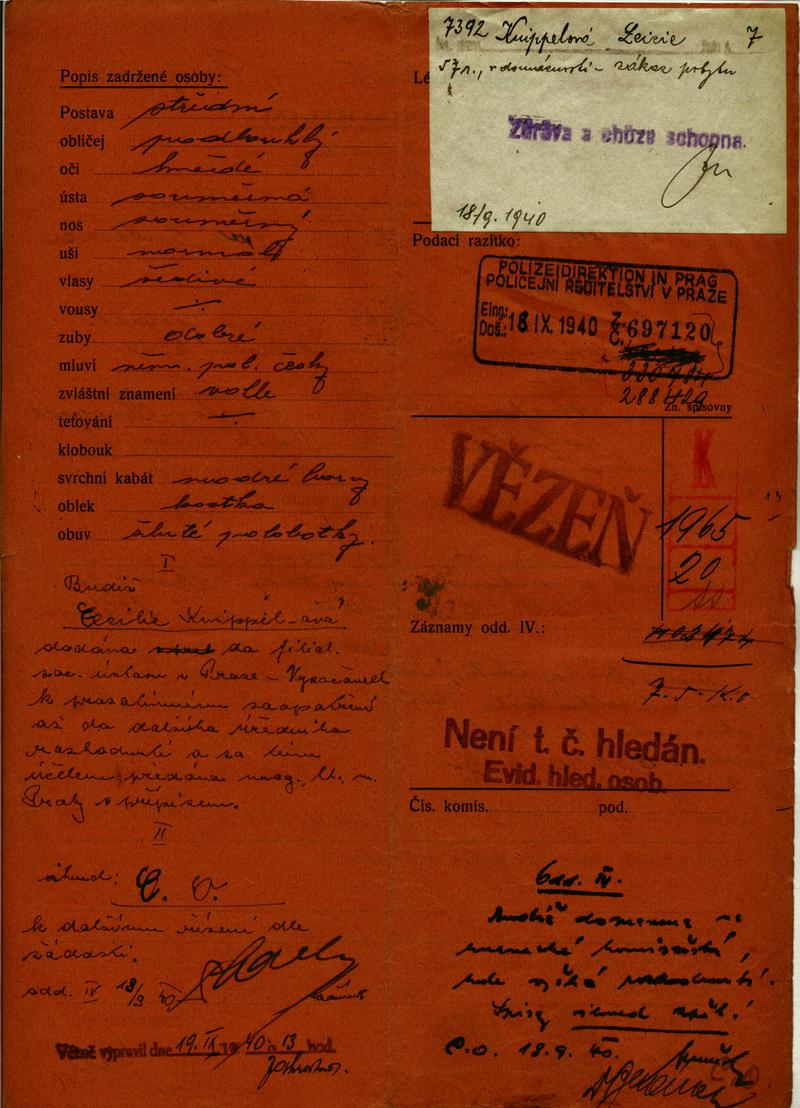 Popis zadržené osoby:
Postava střední
obličej prodlouhlý
oči hnědé
ústa souměrná
nos souměrný
uši normal
vlasy šedivé
vousy ÷
zuby dobré
mluví něm. pol. česky
zvláštní znamení volle
tetování ÷
klobouk
svrchní kabát modré barvy
oblek kostka
obuv žluté polobotky.
I
Budiž
Cecilie Knippel-ová
dodána do filial.
soc. ústavu v Praze – Vysočanech
k prozatímnímu zaopatření
až do dalšího úředního
rozhodnutí a za tím
účelem předána mag. hl. m.
Prahy s přípisem.
II
ihned:
C. O.
k dalšímu řízení dle
žádosti.
odd. IV 18/9 40
Vězně vypravil dne 19. IX 1940 o 13 hod.
7392 Knippelová Cecilie 7
57 r., v domácnosti – zákaz pobytu
Zdráva a chůze schopna.
18/9. 1940
Lé
Podací razítko:
POLIZEIDIREKTION IN PRAG
POLICEJNÍ ŘEDITELSTVÍ V PRAZE
Eing.:
Doš.: 18 IX. 1940 Z. Č. 697120
288429
Zn. spisovny
VĚZEŇ
1965
20
Záznamy odd. IV.:
Není t. č. hledán.
Evid. hled. osob.
Čís. komis. pod.
Odd. IV.
Spisy ihned zpět!
C.O. 18. 9. 40.